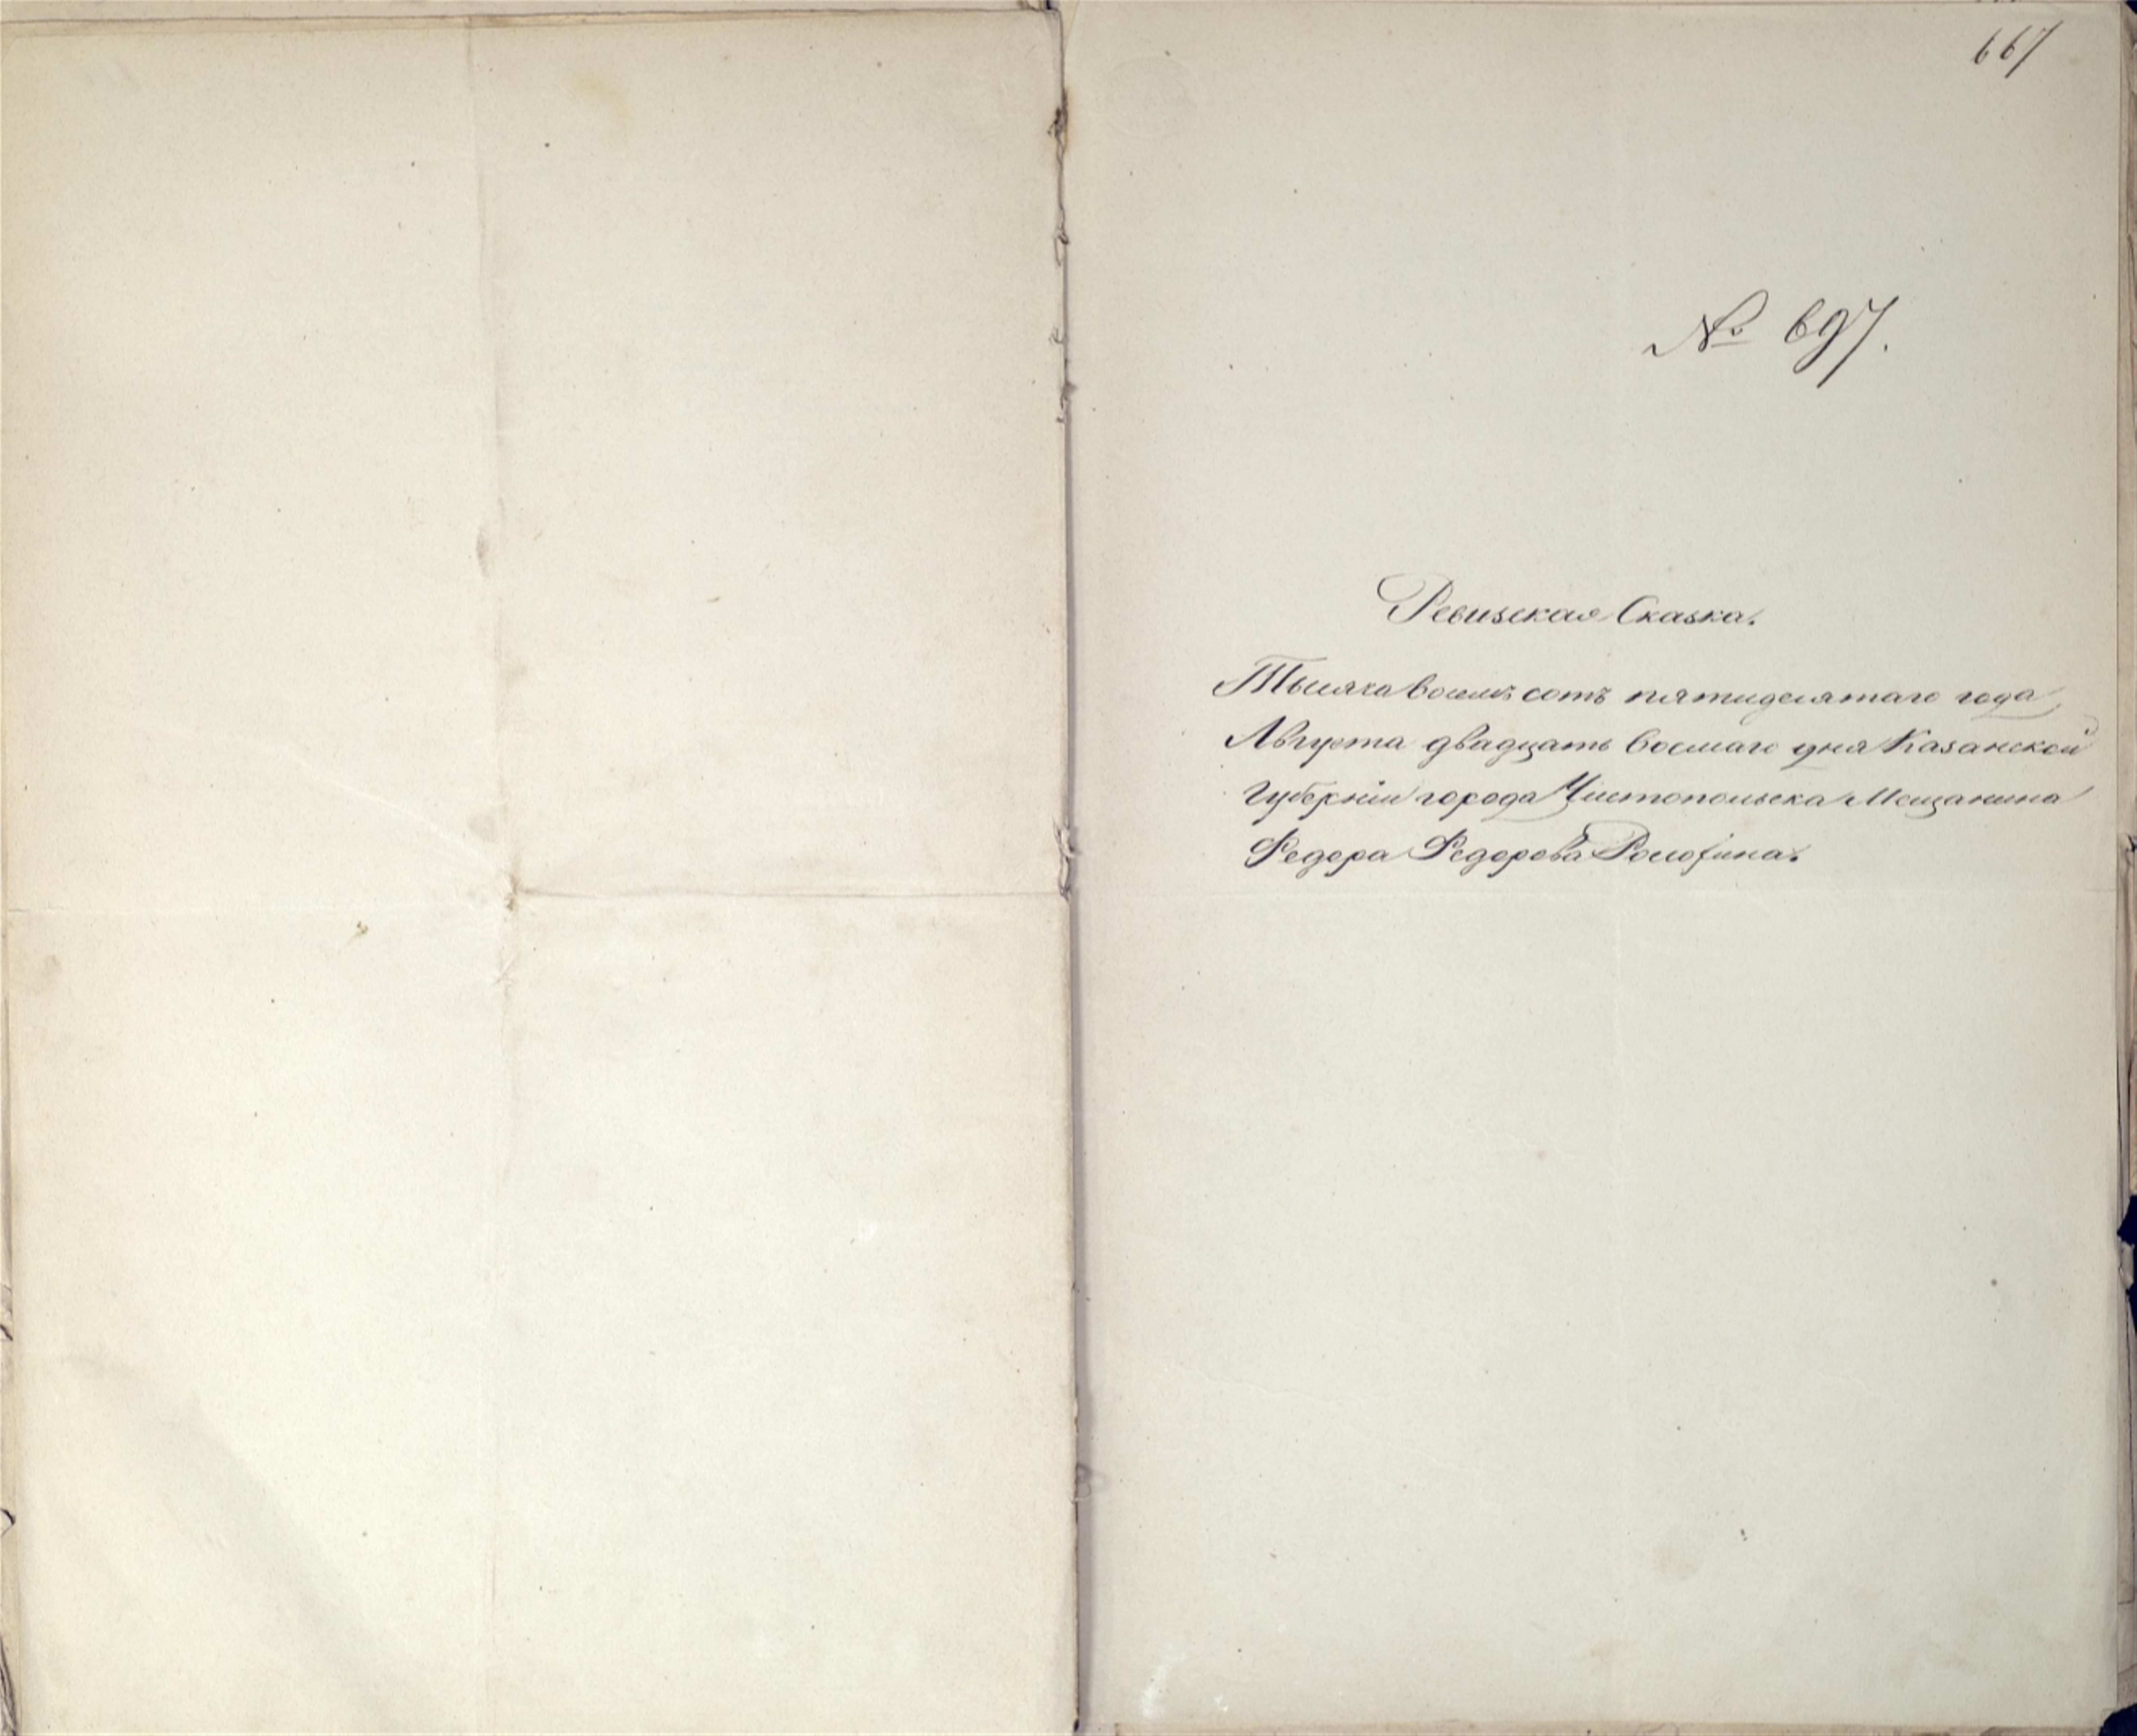 667
№ 697.
Ревизская Сказка.
Тысяча восемь сотъ пятидесятаго года,
Августа двадцать восмаго дня Казанской
Губерніи города Чистопольска Мещанина
Федора Федорова